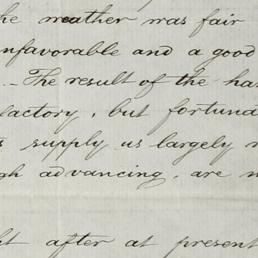 he weather was fair
nfavorable and a good
. The result of the ha
factory, but fortuna
s supply us largely
gh advancing, are n
t after at present